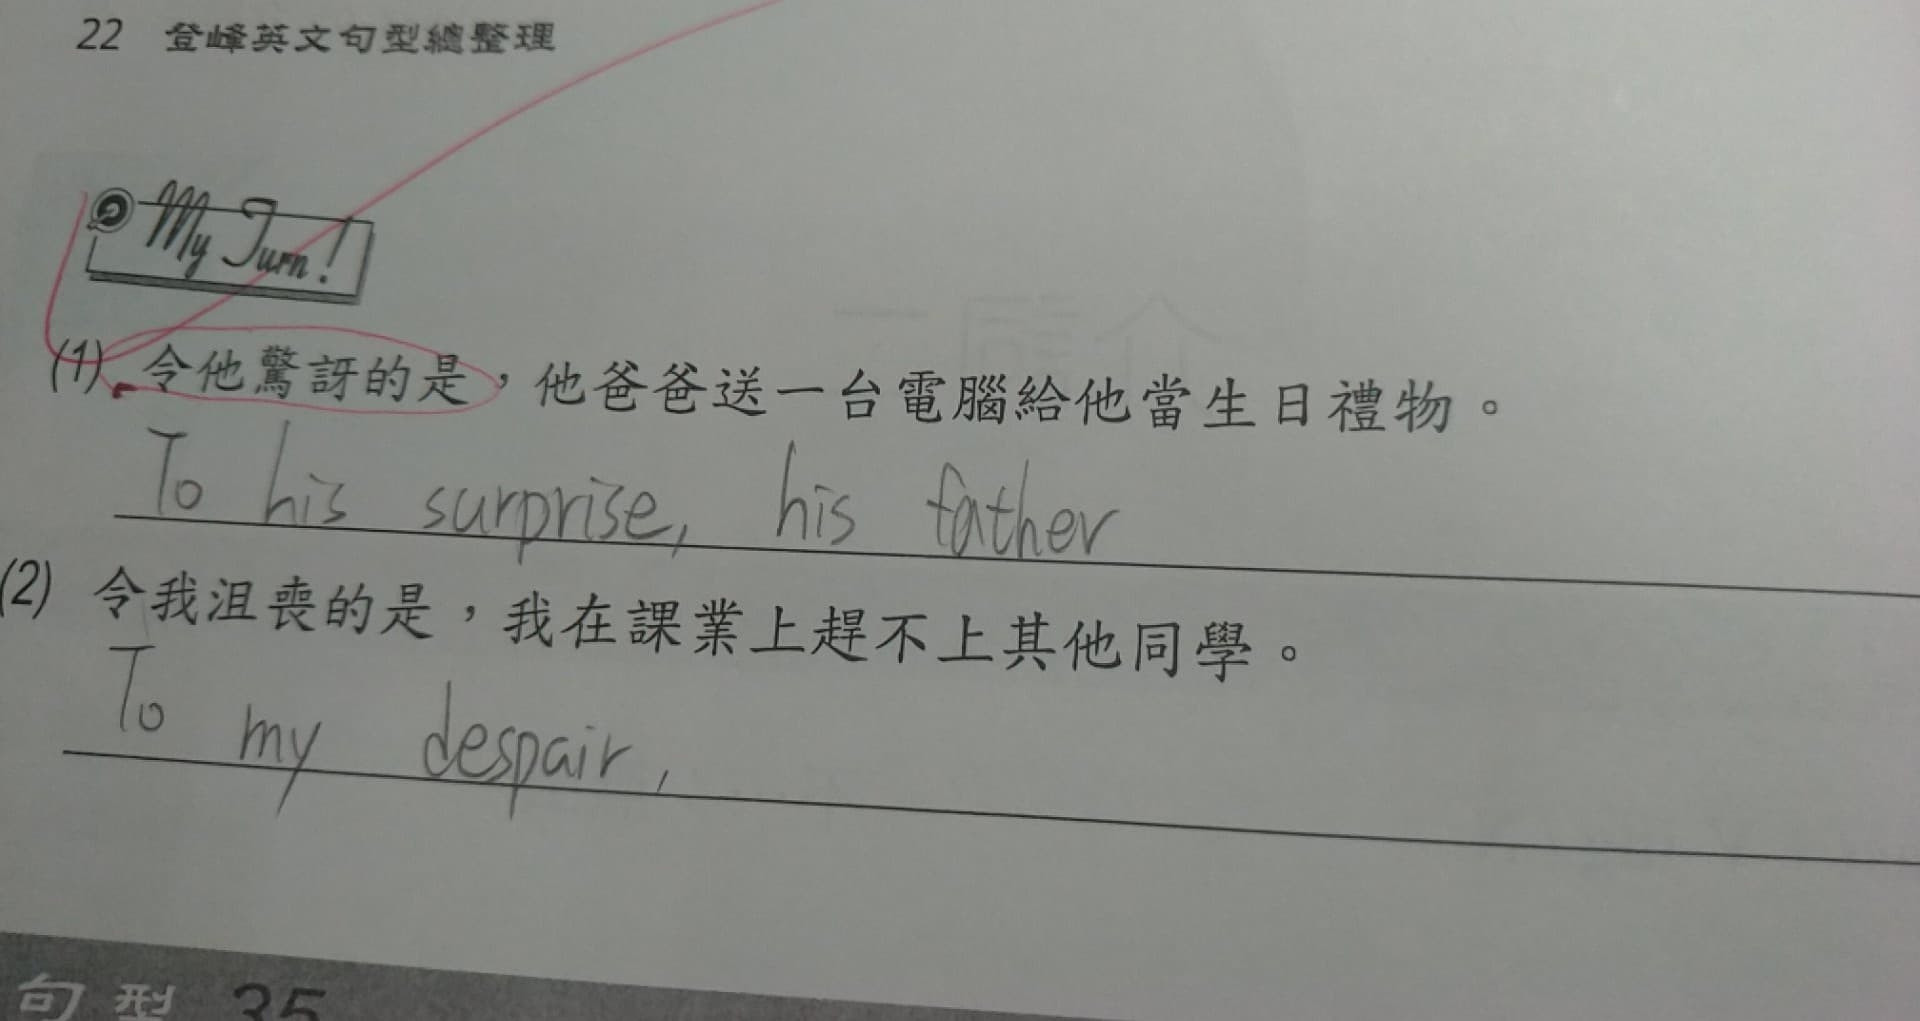 22 登峰英文句型總整理
My Turn!
(1) 令他驚訝的是，他爸爸送一台電腦給他當生日禮物。
To his surprise, his father
(2) 令我沮喪的是，我在課業上趕不上其他同學。
To my despair,
句型 35